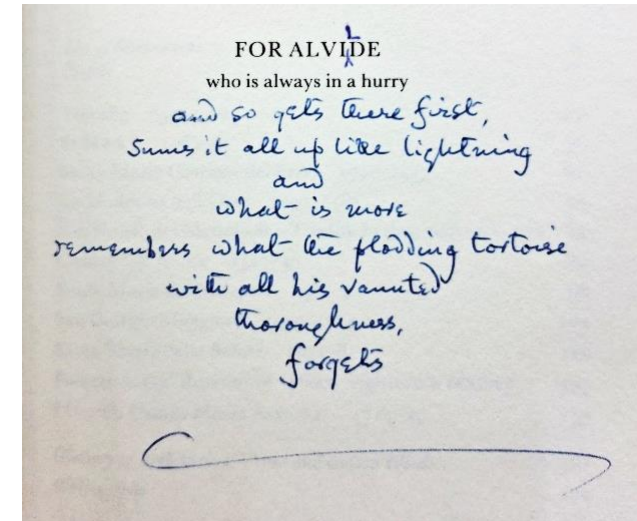 FOR ALVIDE
L
who is always in a hurry
and so gets there first,
sums it all up like lightning
and
what is more
remembers what the plodding tortoise
with all his vaunted
thoroughness,
forgets